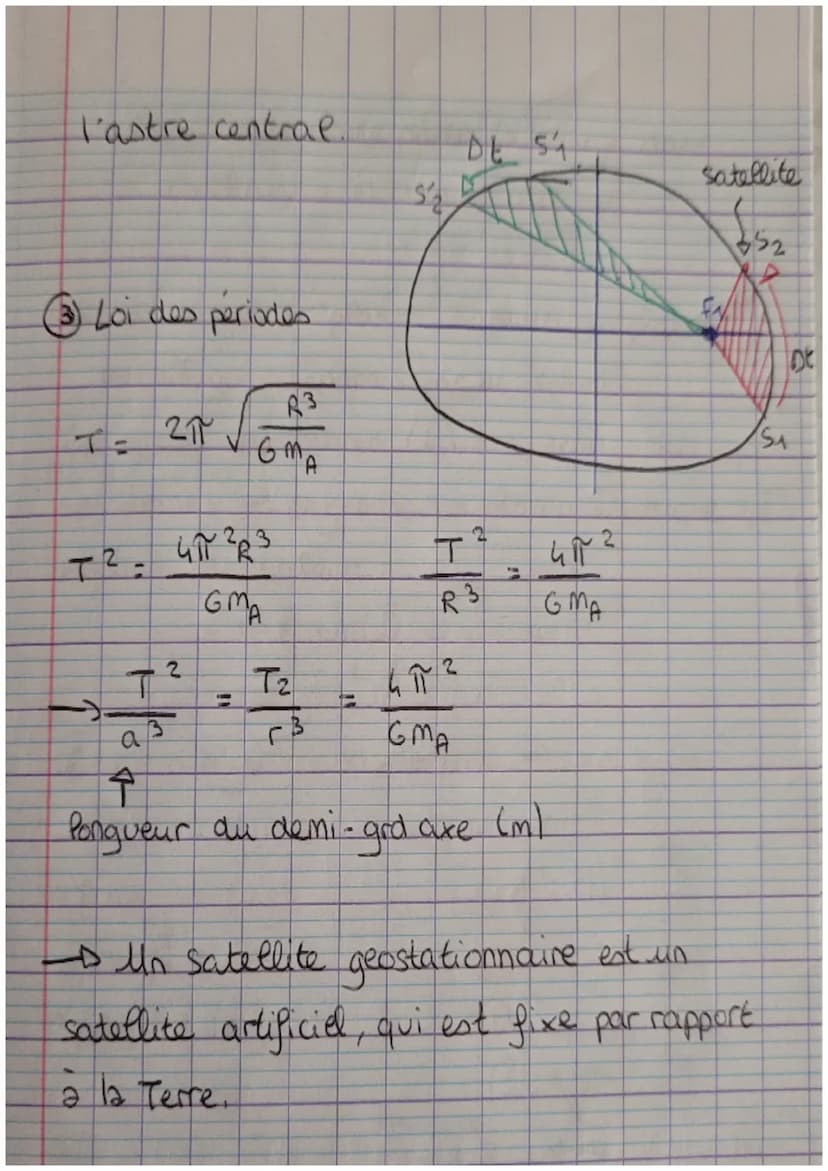 l'astre central.
Dt S'1
S'2
satellite
S2
F1
Dt
S1
③ Loi des périodes
T = 2π √(R³ / G mA)
T² = 4π²R³ / G mA    T² / R³ = 4π² / G mA
→ T² / a³ = T2 / r³ = 4π² / G mA
↑
longueur du demi-grd axe (m)
→ Un satellite geostationnaire est un
satellite artificiel, qui est fixe par rapport
à la Terre.